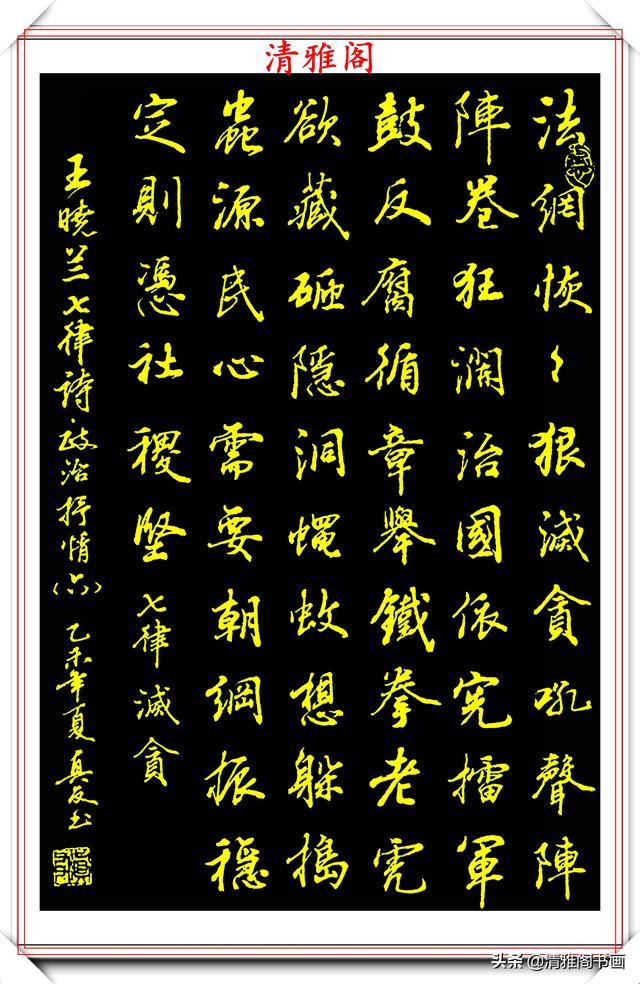 清雅阁
法網恢々狠滅貪吼聲陣
陣卷狂瀾治國依憲擂軍
鼓反腐循章舉鐵拳老虎
欲藏砸隱洞蠅蚊想躲搗
蟲源民心需要朝綱振穩
定則憑社稷堅 七律滅貪
王曉兰七律詩·政治抒情(六) 乙未年夏真友书
头条@清雅阁书画